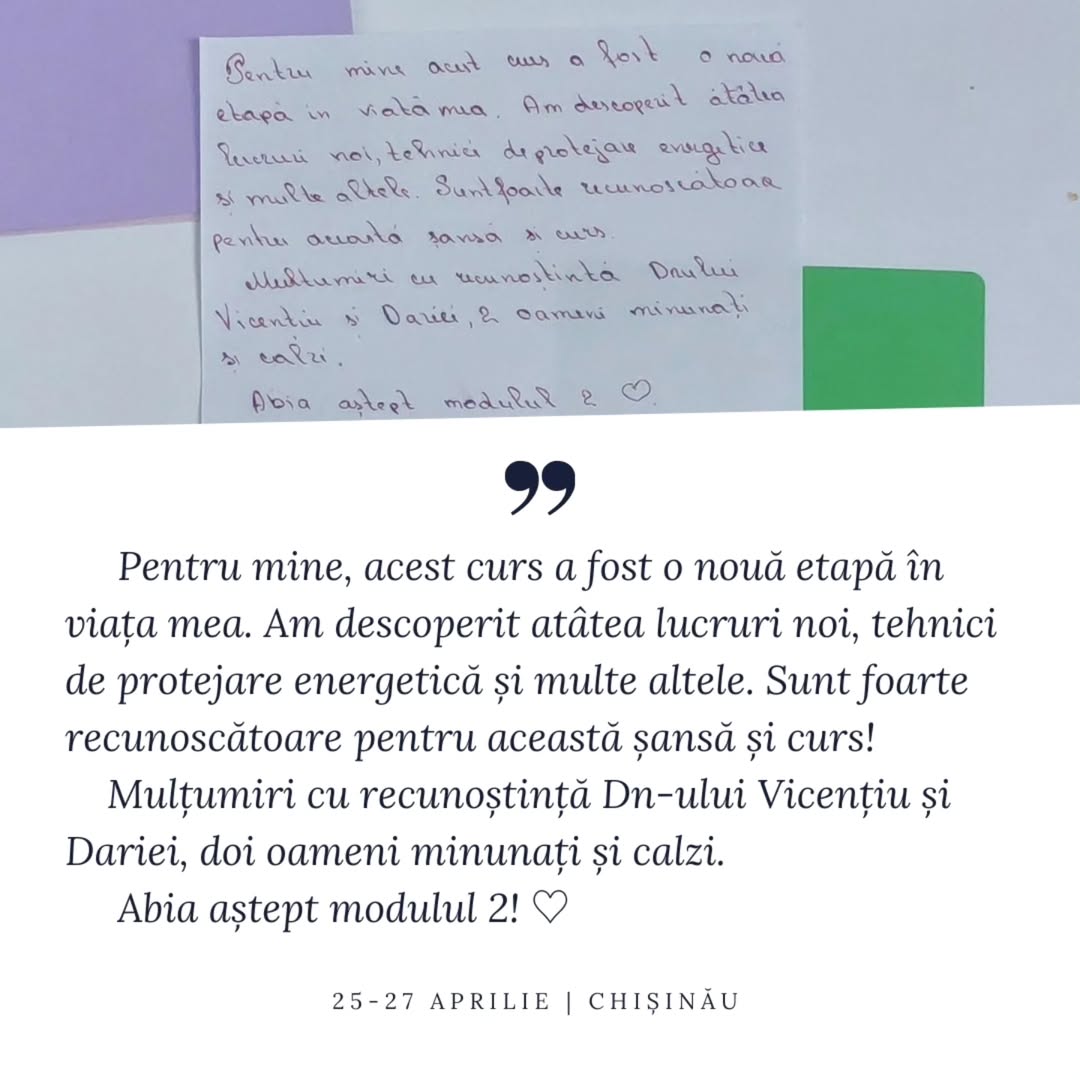 Pentru mine acest curs a fost o nouă
etapă in viată mea. Am descoperit atâtea
lucruri noi, tehnici de protejare energetice
si multe altele. Sunt foarte recunoscătoare
pentru această șansă si curs.
Multumiri cu recunoștintă Dnului
Vicentiu si Dariei, 2 oameni minunați
si calzi.
Abia aștept modulul 2 ♡
”
Pentru mine, acest curs a fost o nouă etapă în
viața mea. Am descoperit atâtea lucruri noi, tehnici
de protejare energetică și multe altele. Sunt foarte
recunoscătoare pentru această șansă și curs!
Mulțumiri cu recunoștință Dn-ului Vicențiu și
Dariei, doi oameni minunați și calzi.
Abia aștept modulul 2! ♡
25-27 APRILIE | CHIȘINĂU